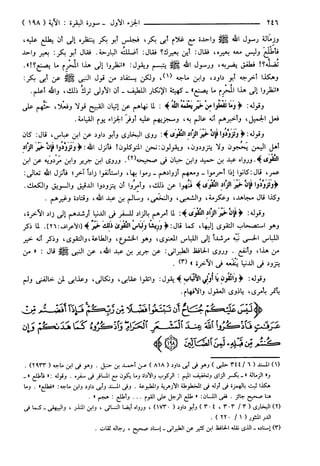 ٢٤٦ الجزء الأول ـ سورة البقرة : الآية ( ١٩٨ )
وزمالة رسول الله ﷺ واحدة مع غلام أبى بكر، فجلس أبو بكر ينتظره إلى أن يطلع عليه،
فأطلع وليس معه بعيره، فقال: أين بعيرك؟ فقال: أضللتُه البارحة. فقال أبو بكر: بعير واحد
تُضلّه؟! فطفق يضربه، ورسول الله ﷺ يتبسم ويقول: «انظروا إلى هذا المُحْرِم ما يصنع؟!».
وهكذا أخرجه أبو داود، وابن ماجه (١)، ولكن يستفاد من قول النبى ﷺ عن أبى بكر:
«انظروا إلى هذا المُحْرِم ما يصنع» ـ كهيئة الإنكار اللطيف ـ أن الأولى تركُ ذلك، والله أعلم.
وقوله: ﴿ وَمَا تَفْعَلُوا مِنْ خَيْرٍ يَعْلَمْهُ اللَّهُ ﴾ : لما نهاهم عن إتيان القبيح قولا وفعلًا، حَثَّهم على
فعل الجميل، وأخبرهم أنه عالم به، وسيجزيهم عليه أوفرَ الجزاء يوم القيامة.
وقوله: ﴿ وَتَزَوَّدُوا فَإِنَّ خَيْرَ الزَّادِ التَّقْوَى ﴾ : روى البخارى وأبو داود عن ابن عباس، قال: كان
أهل اليمن يحجون ولا يتزودون، ويقولون: نحن المتوكلون؟ فأنزل الله: ﴿ وَتَزَوَّدُوا فَإِنَّ خَيْرَ الزَّادِ
التَّقْوَى ﴾. ورواه عبد بن حميد وابن حبان فى صحيحه (٢). وروى ابن جرير وابن مَرْدُويَه عن ابن
عمر، قال: كانوا إذا أحرموا ـ ومعهم أزوادهم ـ رموا بها، واستأنفوا زاداً آخر؛ فأنزل الله تعالى:
﴿ وَتَزَوَّدُوا فَإِنَّ خَيْرَ الزَّادِ التَّقْوَى ﴾ فنُهوا عن ذلك، وأمِرُوا أن يتزودوا الدقيق والسويق والكعك.
وكذا قال مجاهد، وعكرمة، والشعبى، والنخَعى، وسالم بن عبد الله، وقتادة وغيرهم .
وقوله: ﴿ فَإِنَّ خَيْرَ الزَّادِ التَّقْوَى ﴾ : لما أمرهم بالزاد للسفر فى الدنيا أرشدهم إلى زاد الآخرة،
وهو استصحاب التقوى إليها، كما قال: ﴿ وَرِيشًا وَلِبَاسُ التَّقْوَى ذَلِكَ خَيْرٌ ﴾ [الأعراف: ٢٦]. لما ذكر
اللباس الحسى نَبّه مرشداً إلى اللباس المعنوى، وهو الخشوع، والطاعة، والتقوى، وذكر أنه خير
من هذا، وأنفع . وروى الحافظ الطبرانى: عن جرير بن عبد الله، عن النبى ﷺ قال : « من
يتزود فى الدنيا يَنْفعه فى الآخرة » (٣) .
وقوله: ﴿ وَاتَّقُونِ يَا أُولِي الأَلْبَابِ ﴾ يقول: واتقوا عقابى، ونكالى، وعذابى لمن خالفنى ولم
يأتمر بأمرى، يا ذوى العقول والأفهام.
لَيْسَ عَلَيْكُمْ جُنَاحٌ أَن تَبْتَغُوا فَضْلًا مِّن رَّبِّكُمْ فَإِذَا أَفَضْتُم مِّنْ
عَرَفَاتٍ فَاذْكُرُوا اللَّهَ عِندَ الْمَشْعَرِ الْحَرَامِ وَاذْكُرُوهُ كَمَا هَدَاكُمْ وَإِن
كُنتُم مِّن قَبْلِهِ لَمِنَ الضَّالِّينَ
(١) المسند ( ٦ / ٣٤٤ حلبى ) وهو فى أبى داود ( ٨١٨ ) من أحمد بن حنبل . وهو فى ابن ماجه ( ٢٩٣٣ ) .
و« الزمالة » ـ بكسر الزاى وتخفيف الميم : المركوب والأداة وما يكون مع المسافر فى سفره . وقوله : « فأطلع » ـ
هكذا ثبت بالهمزة فى أوله فى المخطوطة الأزهرية والمطبوعة . وفى المسند وأبى داود وابن ماجه: «فطلع» . وما
هنا صحيح جائز . ففى اللسان: « طلع الرجل على القوم ... وأطلع : هجم » .
(٢) البخارى ( ٣ / ٣٠٣ ، ٣٠٤ ) وأبو داود ( ١٧٣٠ ) ، ورواه أيضا النسائى ، وابن المنذر ، والبيهقى ـ كما فى
الدر المنثور ( ١ / ٢٢٠ ) .
(٣) إسناده ـ الذى نقله الحافظ ابن كثير عن الطبرانى ـ إسناد صحيح ، ورجاله ثقات .